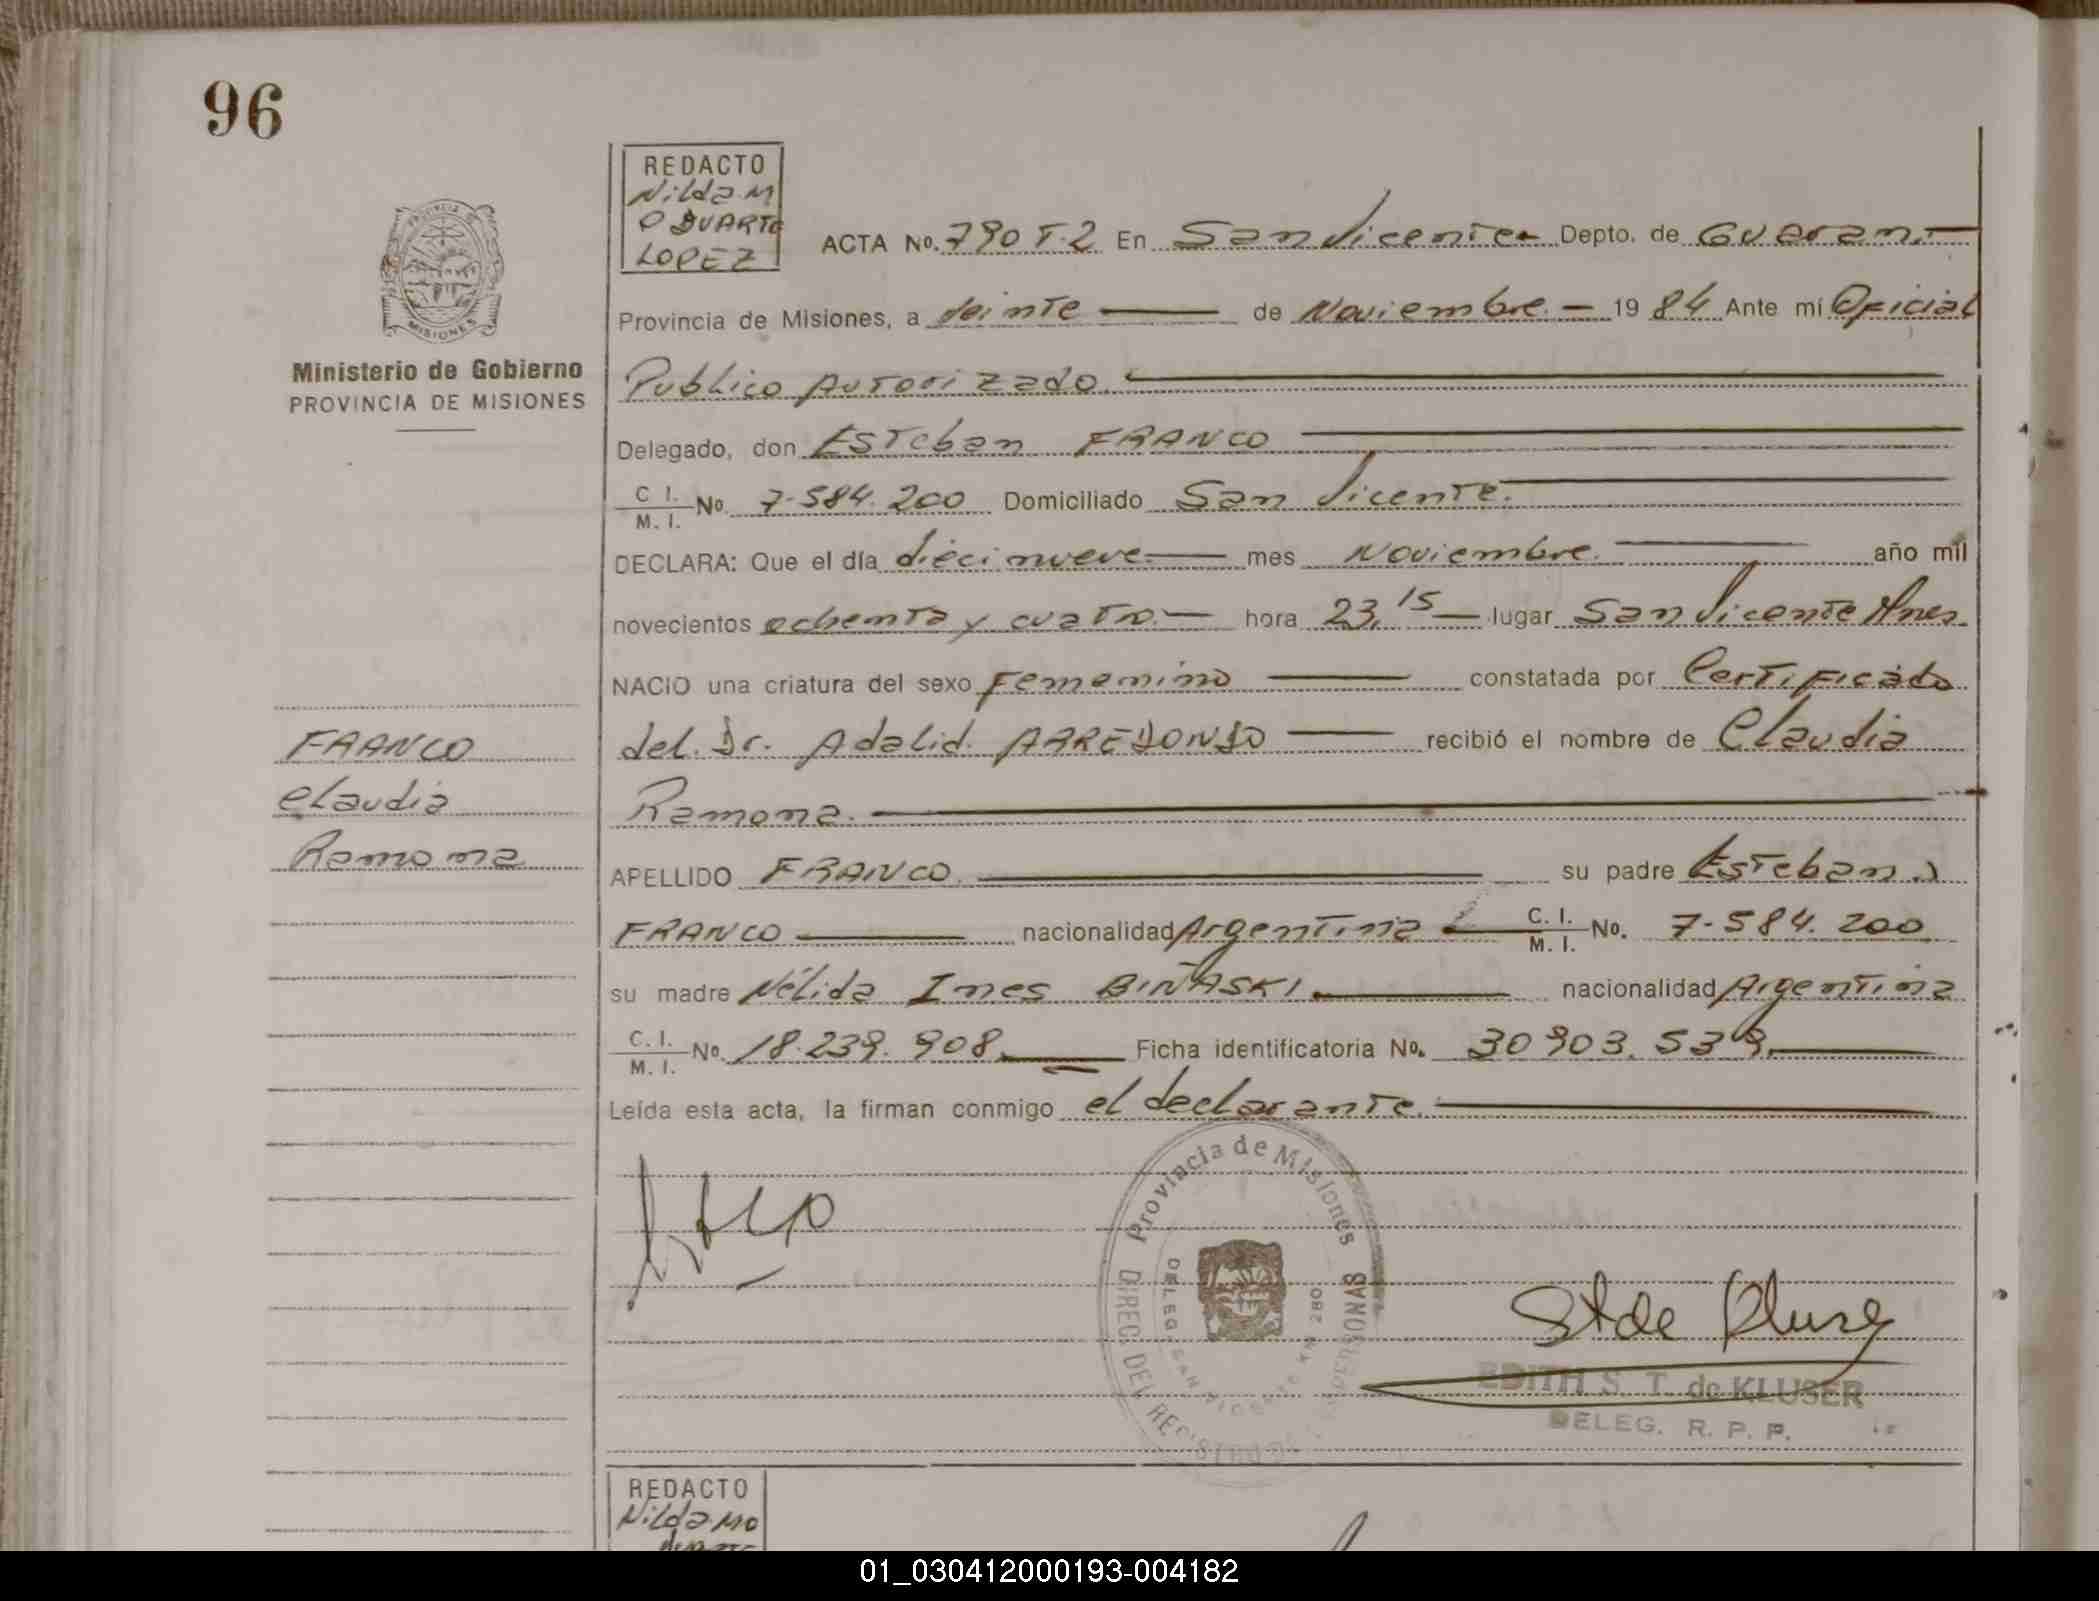 96
REDACTO
Nilda M
O DUARTE
LOPEZ
ACTA No. 790 T.2 En San Vicente Depto. de Guarani
PROVINCIA DE
MISIONES
Ministerio de Gobierno
PROVINCIA DE MISIONES
Provincia de Misiones, a veinte de Noviembre 19 84 Ante mí Oficial
Publico Autorizado
Delegado, don Esteban FRANCO
C I. M. I. No. 7.584.200 Domiciliado San Vicente.
DECLARA: Que el día diecinueve mes Noviembre. año mil
novecientos ochenta y cuatro hora 23,15 lugar San Vicente Mnes
NACIO una criatura del sexo Femenino constatada por Certificado
del. Dr. Adalid. ARREDONDO recibió el nombre de Claudia
Ramona.
FRANCO
Claudia
Ramona
APELLIDO FRANCO su padre Esteban
FRANCO nacionalidad Argentina C. I. M. I. No. 7.584.200
su madre Nélida Ines BIÑASKI nacionalidad Argentina
C. I. M. I. No. 18.239.908 Ficha identificatoria No. 30903.539
Leída esta acta, la firman conmigo el declarante.
Provincia de Misiones
DIREC. DEL REGISTRO PERSONAS
DELEG. SAN VICENTE KM 280
St de Kluser
EDITH S. T. de KLUSER
DELEG. R. P. P.
REDACTO
Nilda MO
01_030412000193-004182